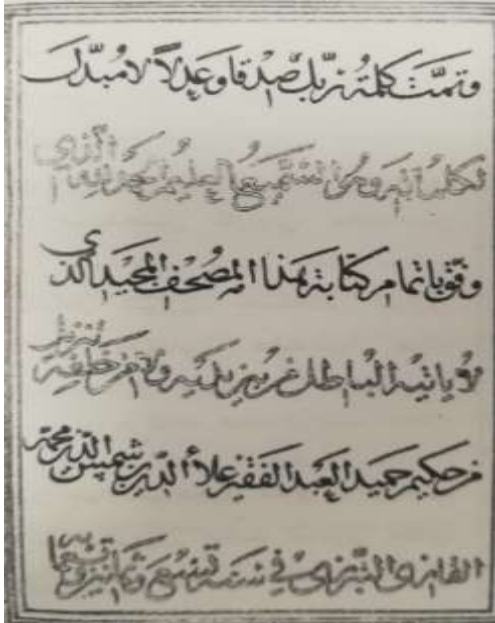 وتمت كلمة ربك صدقا وعدلا لا مبدل
لكلماته وهو السميع العليم الحمد لله الذي
وفق باتمام كتابة هذا المصحف المجيد الذي
لا ياتيه الباطل من بين يديه ولا من خلفه تنزيل
من حكيم حميد العبد الفقير علاء الدين شمس الدين محمد
التبريزي في سنة تسع